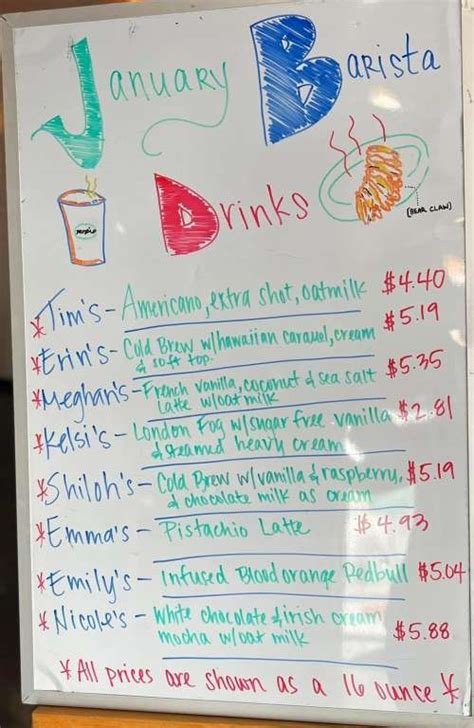 January Barista
Drinks
(BEAR CLAW)
*Tim's - Americano, extra shot, oatmilk $4.40
*Erin's - Cold Brew w/hawaiian caramel, cream $5.19
& soft top.
*Meghan's - French vanilla, coconut & sea salt $5.35
Latte w/oat milk
*Kelsi's - London Fog w/sugar free vanilla $2.81
& steamed heavy cream
*Shiloh's - Cold Brew w/vanilla & raspberry, $5.19
& chocolate milk as cream
*Emma's - Pistachio Latte $4.93
*Emily's - Infused Blood orange Redbull $5.04
*Nicole's - White chocolate & irish cream
mocha w/oat milk $5.88
*All prices are shown as a 16 ounce*